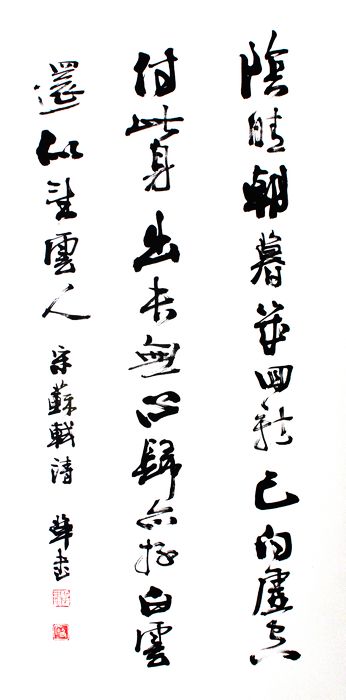 陰晴朝暮幾回新已向虛空
付此身出本無心歸亦好白雲
還似望雲人 宋蘇軾詩 華書